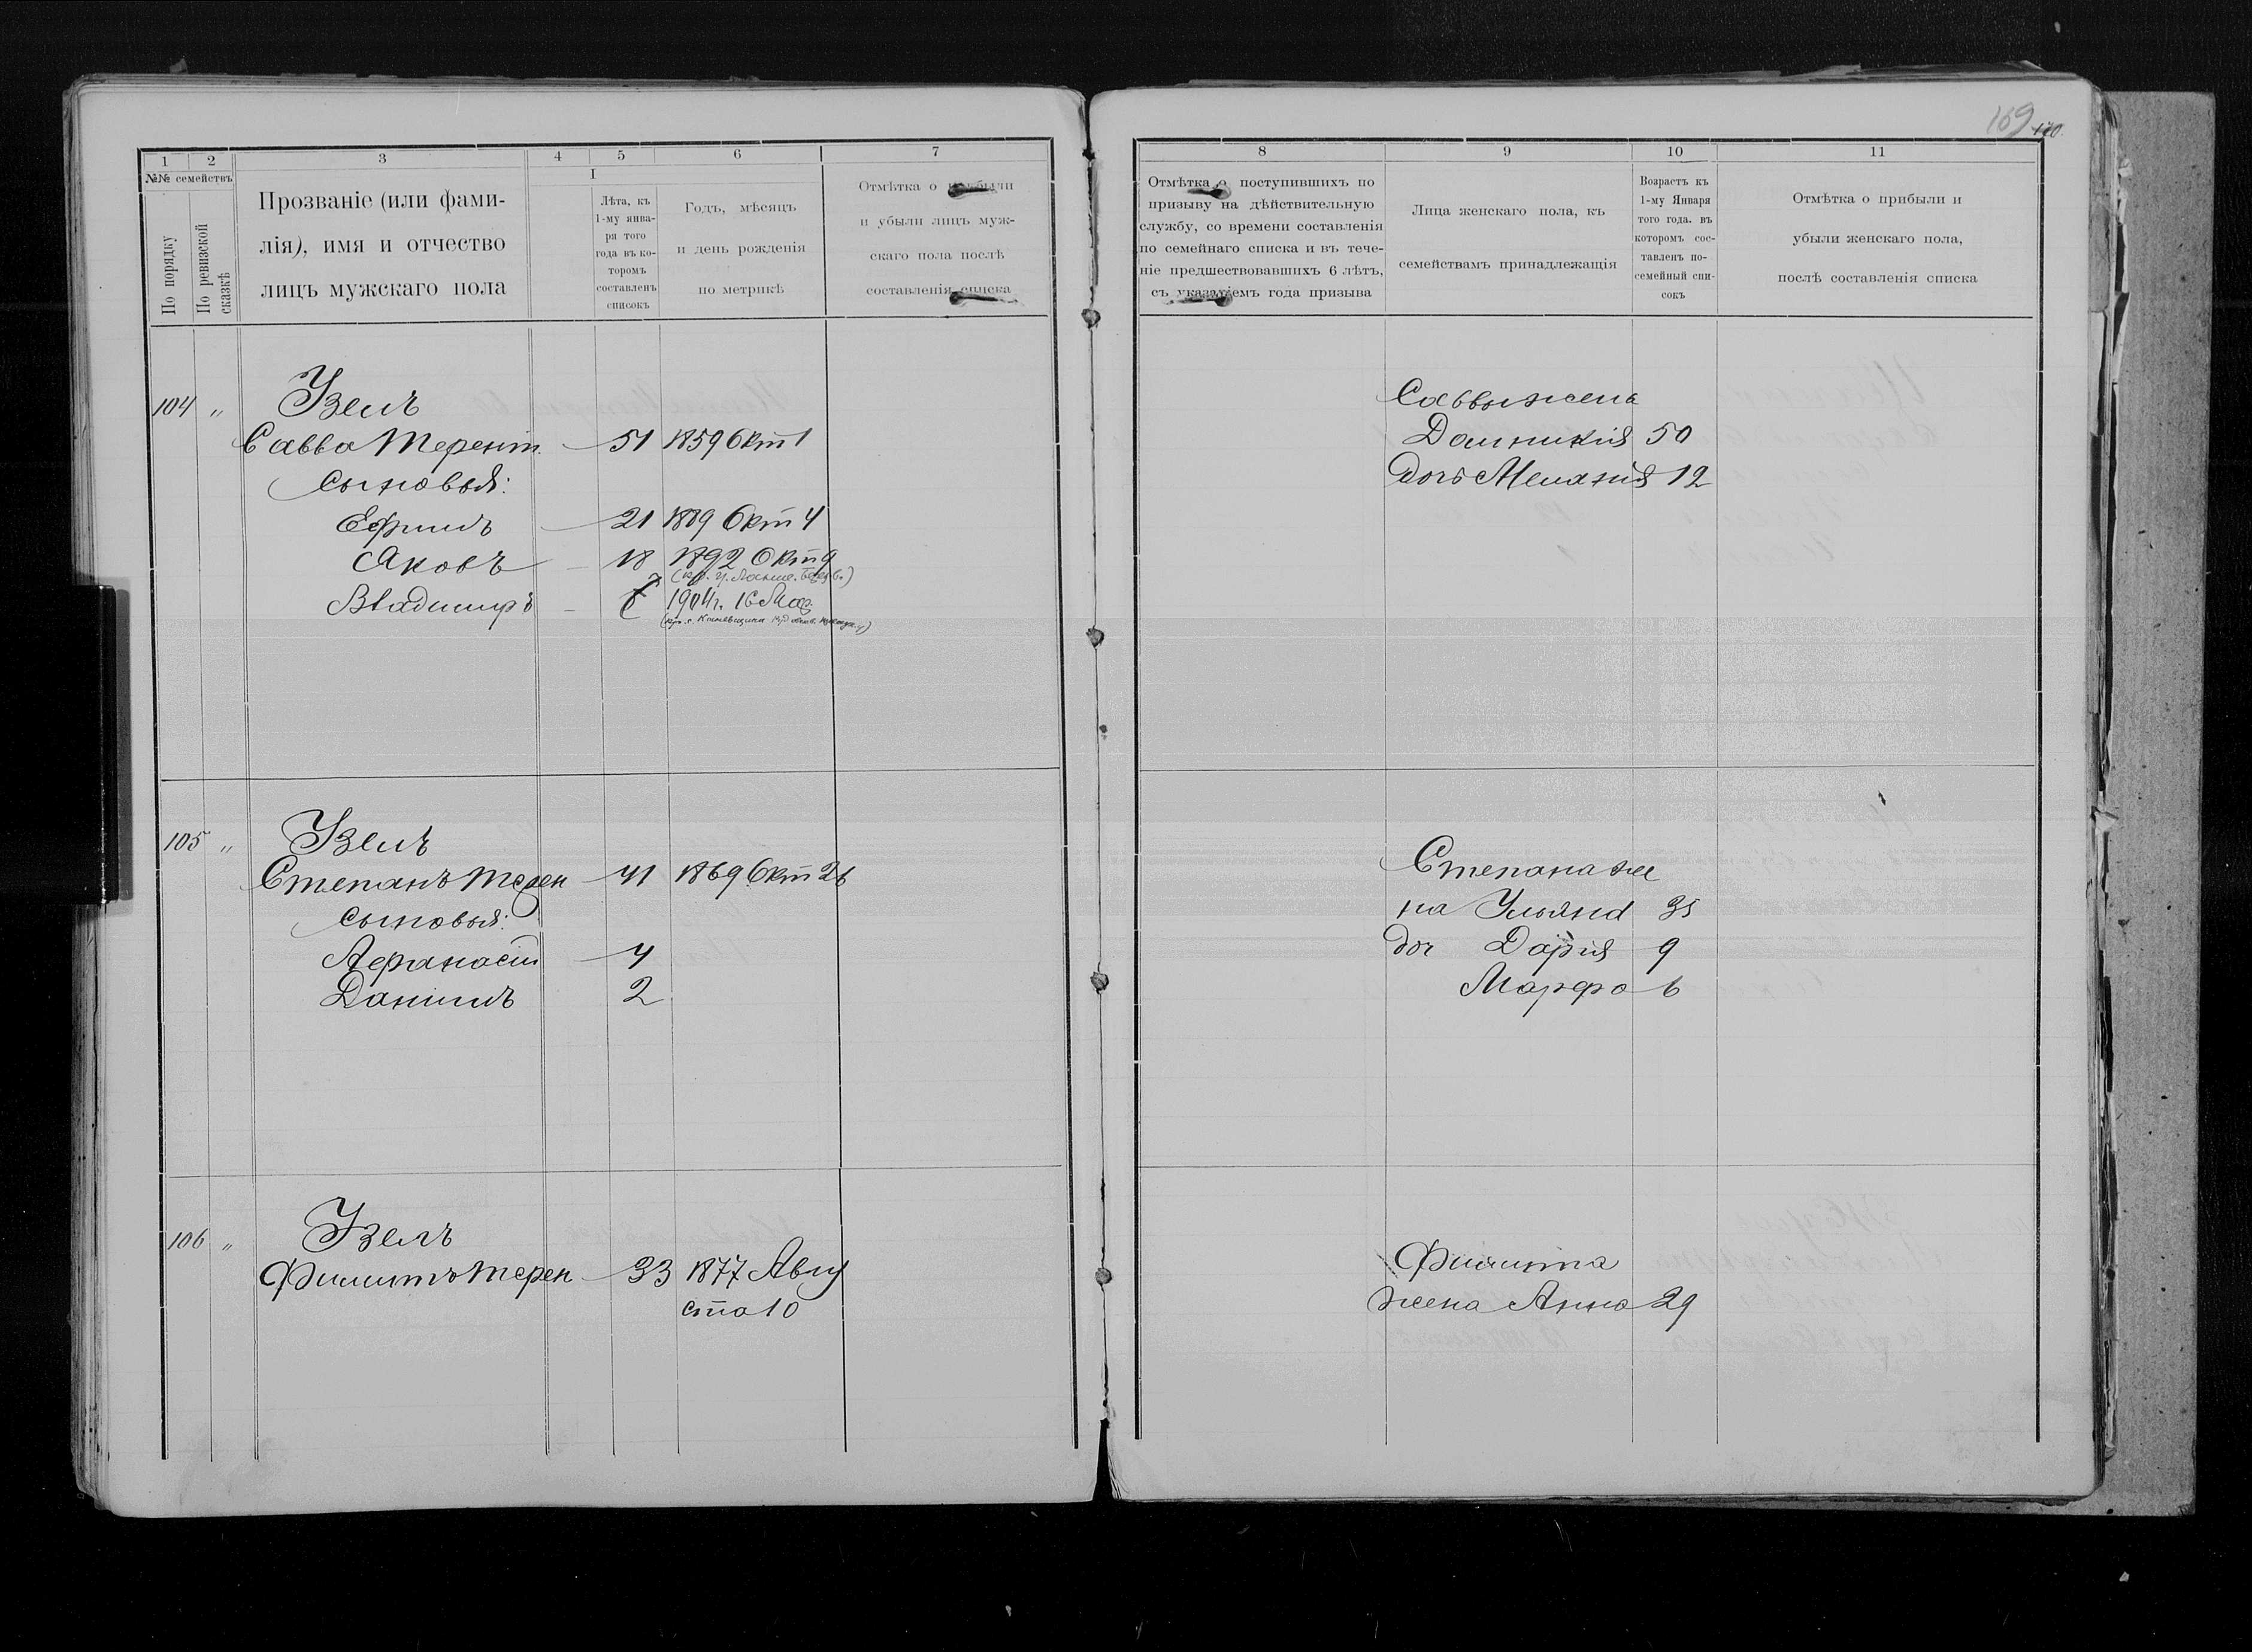 169
170
1
2
3
4
5
6
7
№№ семействъ
По порядку
По ревизской сказкѣ
Прозваніе (или фами-
лія), имя и отчество
лицъ мужскаго пола
I
Лѣта, къ
1-му янва-
ря того
года въ ко-
торомъ
составленъ
списокъ
Годъ, мѣсяцъ
и день рожденія
по метрикѣ
Отмѣтка о прибыли
и убыли лицъ муж-
скаго пола послѣ
составленія списка
8
9
10
11
Отмѣтка о поступившихъ по
призыву на дѣйствительную
службу, со времени составленія
по семейнаго списка и въ тече-
ніе предшествовавшихъ 6 лѣтъ,
съ указаніемъ года призыва
Лица женскаго пола, къ
семействамъ принадлежащія
Возрастъ къ
1-му Января
того года. въ
которомъ сос-
тавленъ по-
семейный спи-
сокъ
Отмѣтка о прибыли и
убыли женскаго пола,
послѣ составленія списка
104 " Узелъ
Савва Терент. 51 1859 Окт 1
Сыновья:
Ефимъ 21 1889 Окт 4
Яковъ 18 1892 Окт 9
Владимиръ 1904г. 16
Саввы жена
Домникія 50
дочь Меланія 12
105 " Узелъ
Степанъ Терен 41 1869 Окт 26
Сыновья:
Афанасій 4
Даніилъ 2
Степана же
на Ульяна 35
доч Дарія 9
Марфа 6
106 " Узелъ
Филиппъ Терен 33 1877 Авгу
ста 10
Филиппа
жена Анна 29